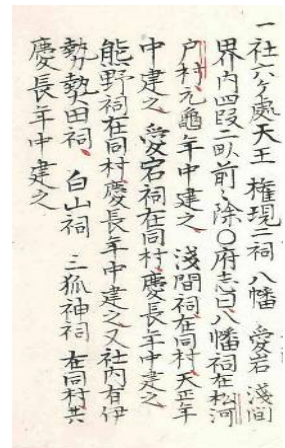 一社六ケ處天王 権現二祠 八幡 愛宕 淺間
界内四段二畝前々除〇府志曰八幡祠在松河
戸村元龜年中建之 淺間祠在同村天正年
中建之 愛宕祠在同村慶長年中建之
熊野祠在同村慶長年中建之又社内有伊
勢熱田祠 白山祠 三狐神祠 在同村共
慶長年中建之